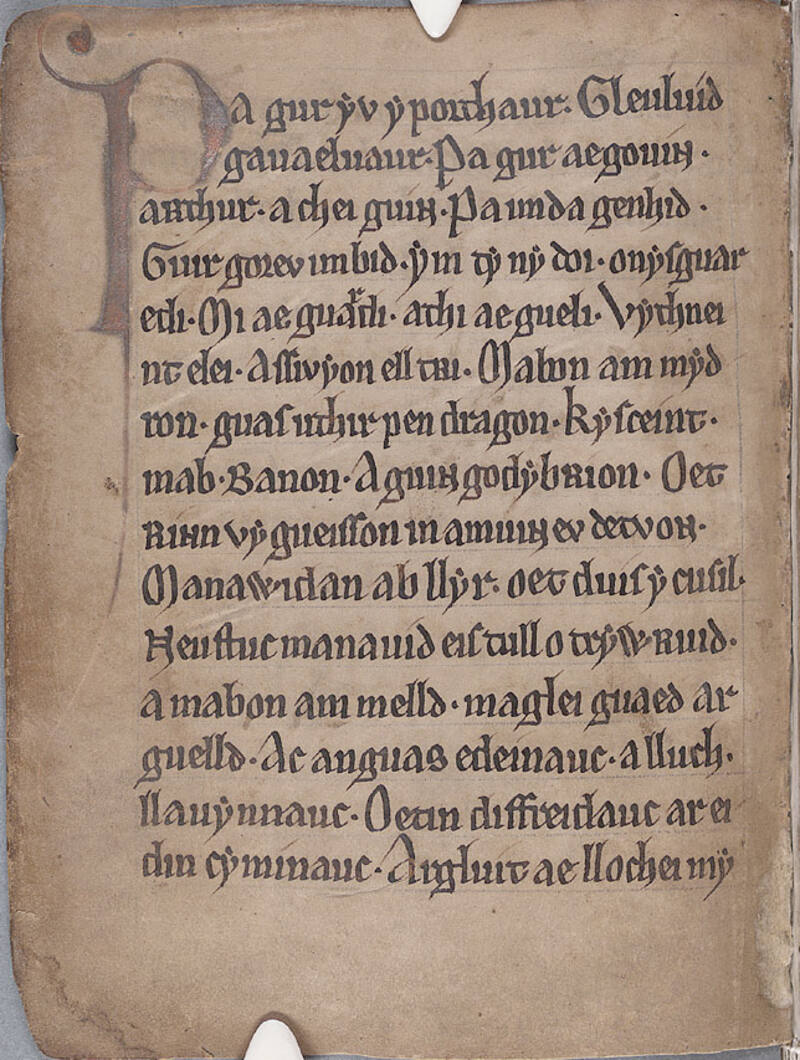 Pa gur ẏv y porthaur. Gleuluid
gauaeluaur. Pa gur ae gouin.
arthur. a chei guin. Pa imda genhid.
Guir gorev im bid. ẏm tẏ nẏ doi. onẏsguar
edi. Mi ae guardi. athi ae gueli. Vythnei
nt elei. Assivẏon ell tri. Mabon am mẏd
ron. guas uthir pen dragon. Kẏsceint.
mab. Banon. A guin godẏbrion. Oet
rinn vẏ gueisson in amuin ev detvon.
Manawidan ab llẏr. oet duis ẏ cusil.
Neustuc manauid eis tull o trẏwruid.
a mabon am melld. maglei guaed ar
guelld. Ac anguas edeinauc. a lluch.
llauẏnnauc. Oetin diffreidauc ar ei
din cẏminauc. Argluit ae llochei mẏ